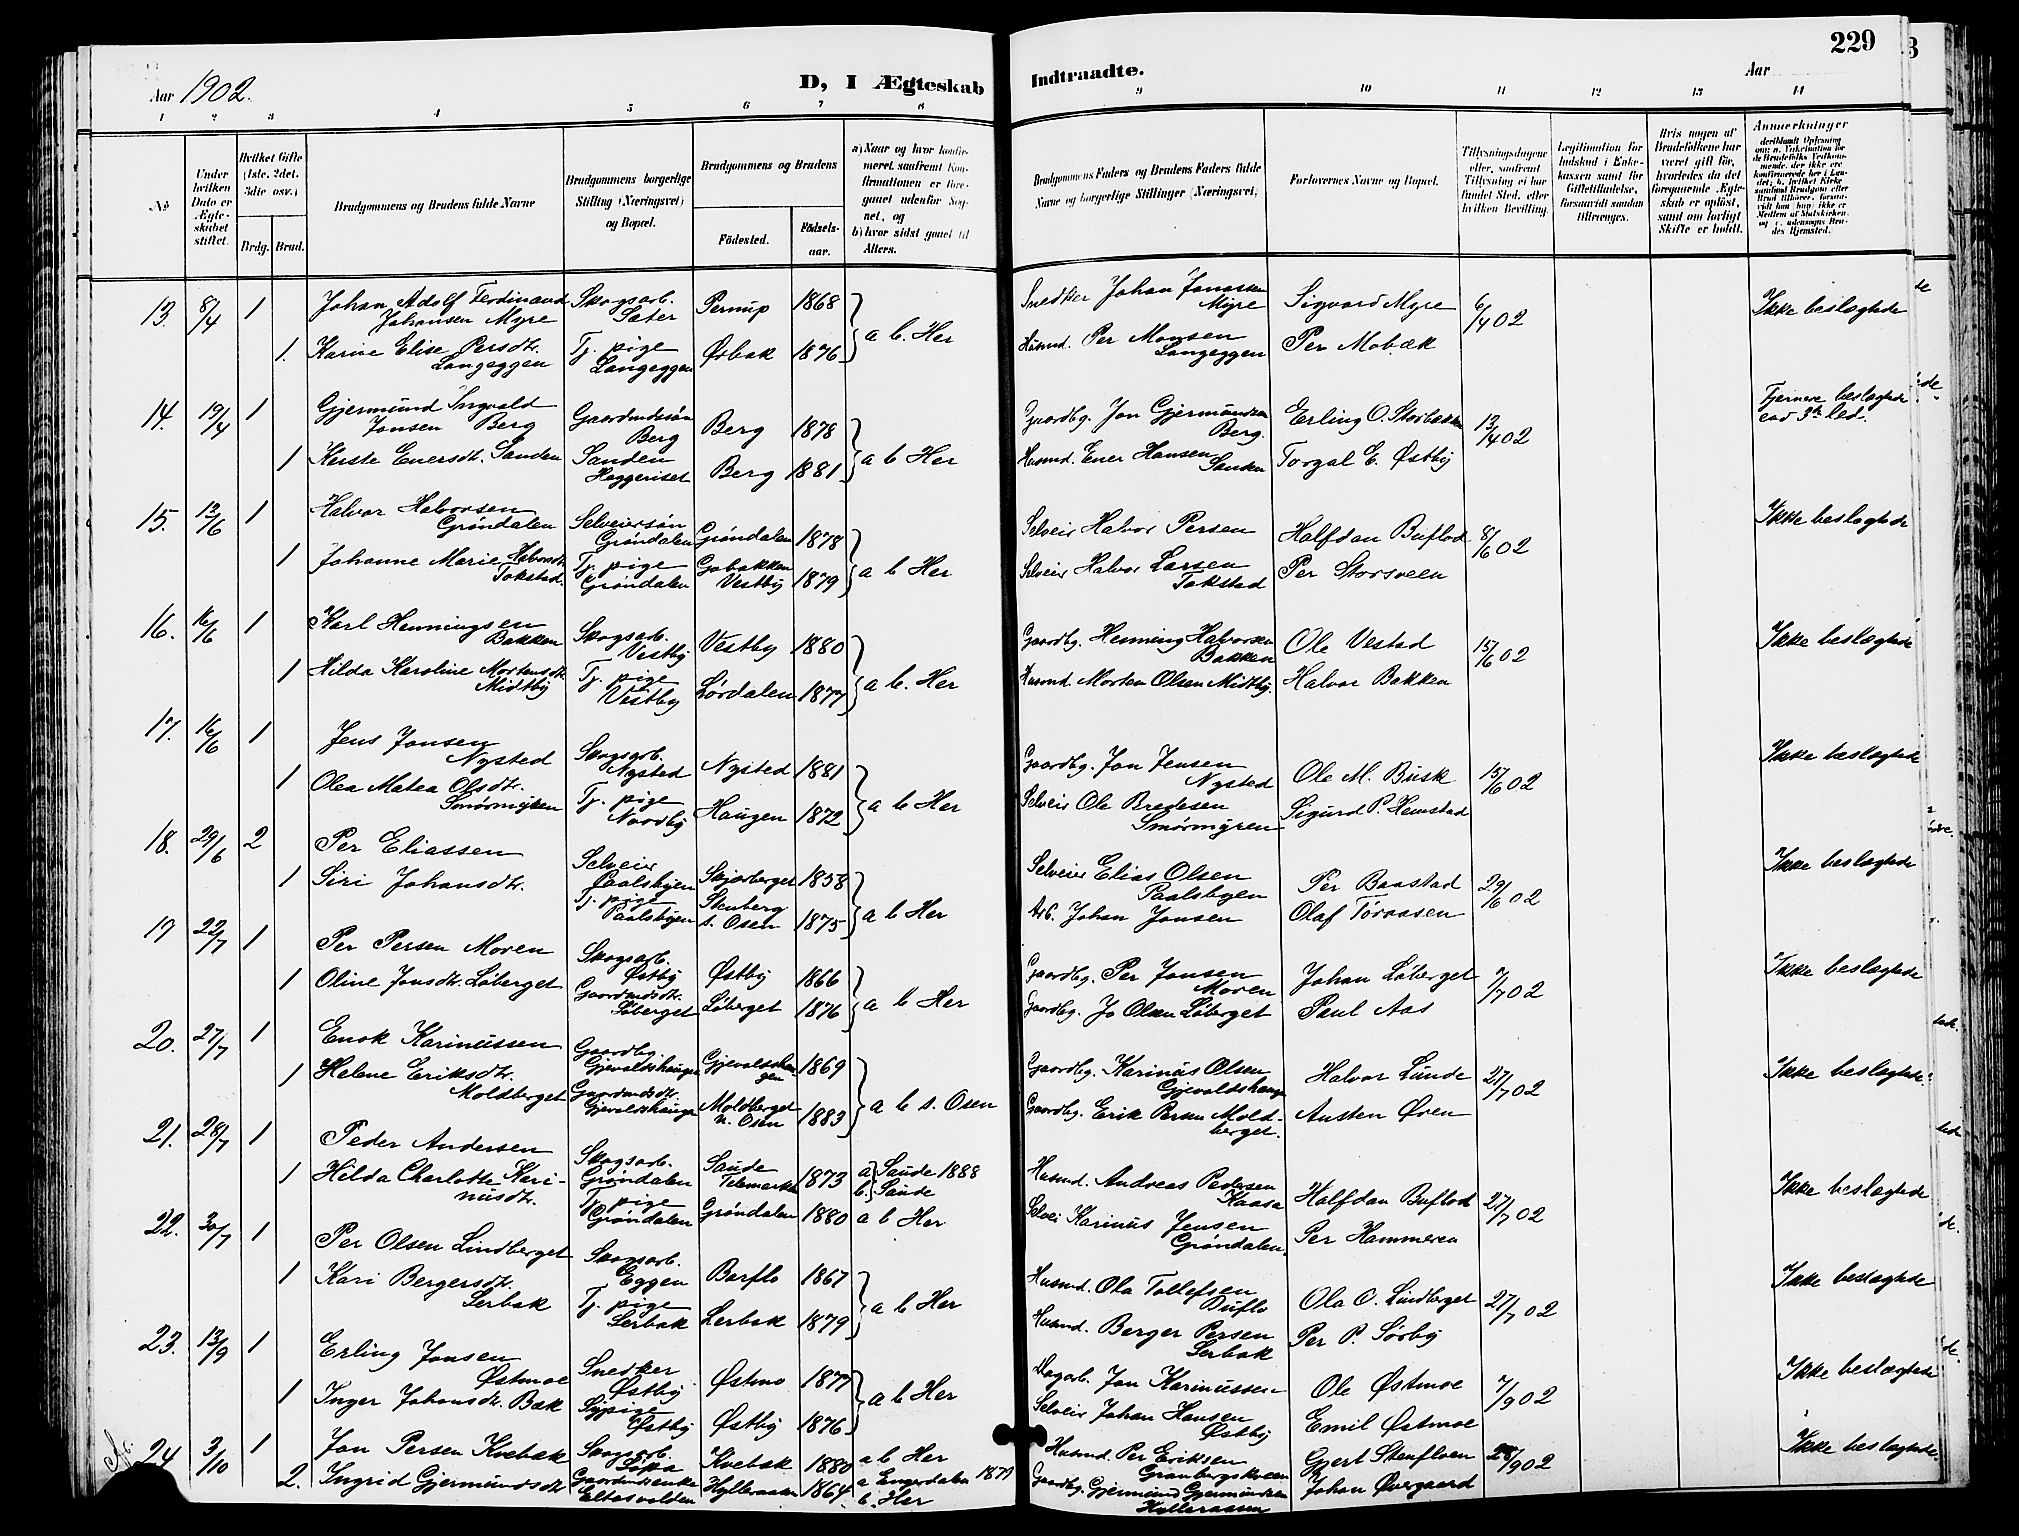 229
Aar 1902.
D, I Ægteskab Indtraadte.
Aar
1 2 3 4 5 6 7 8 9 10 11 12 13 14
No
Under hvilken Dato er Ægteskabet stiftet.
Hvilket Gifte (1ste, 2det, 3die osv.)
Brdg. Brud.
Brudgommens og Brudens fulde Navne
Brudgommens borgerlige Stilling (Næringsvei) og Bopæl.
Brudgommens og Brudens
Födested. Födsels-aar.
a) Naar og hvor konfirmeret, samfremt Konfirmationen er foregaaet udenfor Sognet, og
b) hvor sidst gaaet til Alters.
Brudgommens Faders og Brudens Faders fulde Navne og borgerlige Stillinger (Næringsvei)
Forlovernes Navne og Bopæl.
Tillysningsdagene eller, samfremt Tillysning ei har fundet Sted, efter hvilken Bevilling.
Legitimation for Indskud i Enkekassen samt for Giftetilladelse, forsaavidt saadan tiltrænges.
Hvis nogen af Brudefolkene har været gift før, hvorledes da det foregaaende Ægteskab er opløst, samt om lovligt Skifte er holdt.
Anmerkninger
13. 8/4 1 Johan Adolf Ferdinand Johansen Myre Skogsarb. Sæter Pernup 1868 a b. Her Snedker Johan Jonassen Myre Sigvard Myre 6/4 02 Ikke beslægtede
1. Karine Elise Persdtr. Langeggen Tj. pige Langeggen Örbæk 1876 Husmd. Per Monsen Langeggen Per Mobæk
14. 19/4 1 Gjermund Ingvald Jonsen Berg Gaardmdssön Berg Berg 1878 a b Her Gaardbg. Jon Gjermundsen Berg. Erling O. Storbækken 13/4 02 Fjernere beslægtede end 3die Led.
1 Kerste Enersdtr. Sanden Sanden Haggeriset Berg 1881 Husmd. Ener Hansen Sanden Torgal E. Østby
15. 13/6 1 Halvor Halvorsen Gröndalen Selveiersön Gröndalen Gröndalen 1878 a b Her Selveier Halvor Persen Halfdan Buflod 8/6 02 Ikke beslægtede
1 Johanne Marie Halvorsdtr. Tokstad. Tj. pige Gröndalen Gobakken Vestby 1879 Selveier Halvor Larsen Tokstad Per Storsveen
16. 16/6 1 Karl Henningsen Bakken Skogsarb. Vestby Vestby 1880 a b. Her Gaardbg. Henning Halvorsen Bakken Ole Vestad 15/6 02 Ikke beslægtede
1 Hilda Karoline Mortensdtr. Midtby Tj. pige Vestby Lördalen 1877 Husmd. Morten Olsen Midtby. Halvor Bakken
17. 16/6 1 Jens Jonsen Nysted Skogsarb. Nysted Nysted 1881 a b Her Gaardbg. Jon Jensen Nysted Ole M. Busk 15/6 02 Ikke beslægtede
1 Olea Matea Olsdtr. Smörmyren Tj. pige Nordby Haugen 1872 Selveier Ole Bredesen Smörmyren Sigurd P. Hemstad
18. 29/6 2 Per Eliassen Selveier Paalsbyen Skjærberget 1858 a b Her Selveier Elias Olsen Paalsbyen Per Baastad 29/6 02 Ikke beslægtede
1 Siri Johansdtr. Tj. pige Paalsbyen Stenberg s. Osen 1875 Arb. Johan Jonsen Olaf Töraasen
19 22/7 1 Per Persen Moren Skogsarb. Østby Østby 1866 a b Her Gaardbg. Per Jonsen Moren Johan Löberget 7/7 02 Ikke beslægtede
1 Oline Jonsdtr. Löberget Gaardmdsdtr. Löberget Löberget 1876 Gaardbg. Jo Olsen Löberget Paul Aas
20. 27/7 1 Enok Karinussen Gaardbg. Gjevaltshaugen Gjevaltshaugen 1869 a b s. Osen Gaardbg. Karinus Olsen Gjevaltshaugen Halvor Lunde 27/7 02 Ikke beslægtede
1 Helene Eriksdtr. Moldberget Gaardmdsdtr. Gjevaltshaugen Moldberget n. Osen 1883 Gaardbg. Erik Persen Moldberget. Austen Øren
21. 28/7 1 Peder Andersen Skogsarb. Gröndalen Saude Telemarken 1873 a) Saude 1888 b. Saude Husmd. Andreas Pedersen Kaasa Halfdan Buflod 27/7 02 Ikke beslægtede
1 Hilda Charlotte Karinusdtr. Tj. pige Gröndalen Gröndalen 1880 a b Her Selvei Karinus Jensen Gröndalen. Per Hammeren
22. 30/7 1 Per Olsen Lindberget Skogsarb. Eggen Barflo 1867 a b Her Husmd. Ola Tollefsen Duflo Ola O. Lindberget 27/7 02 Ikke beslægtede
1 Kari Bergersdtr. Lerbak Tj. pige Lerbak Lerbak 1879 Husmd. Berger Persen Lerbak Per P. Sörby
23. 13/9 1 Erling Jonsen Østmoe Snedker Østby Østmo 1877 a b Her Dagarb. Jon Karinussen Ole Østmoe 7/9 02 Ikke beslægtede
1 Inger Johansdtr. Bæk Sypige Østby Østby 1876 Selveier Johan Hansen Østby Emil Østmoe
24 3/10 1 Jon Persen Kvebæk Skogsarb. Kvebæk 1880 a b Her Husmd. Per Eriksen Granbergskveen Gjert Stenfloen 28/9 02 Ikke beslægtede
2. Ingrid Gjermundsdtr Gaardmdsenke Eltesvolden Hylleraasen 1864. a Engerdalen 1879 b. Her Gaardbg. Gjermund Gjermundsen Hylleraasen Johan Övergaard